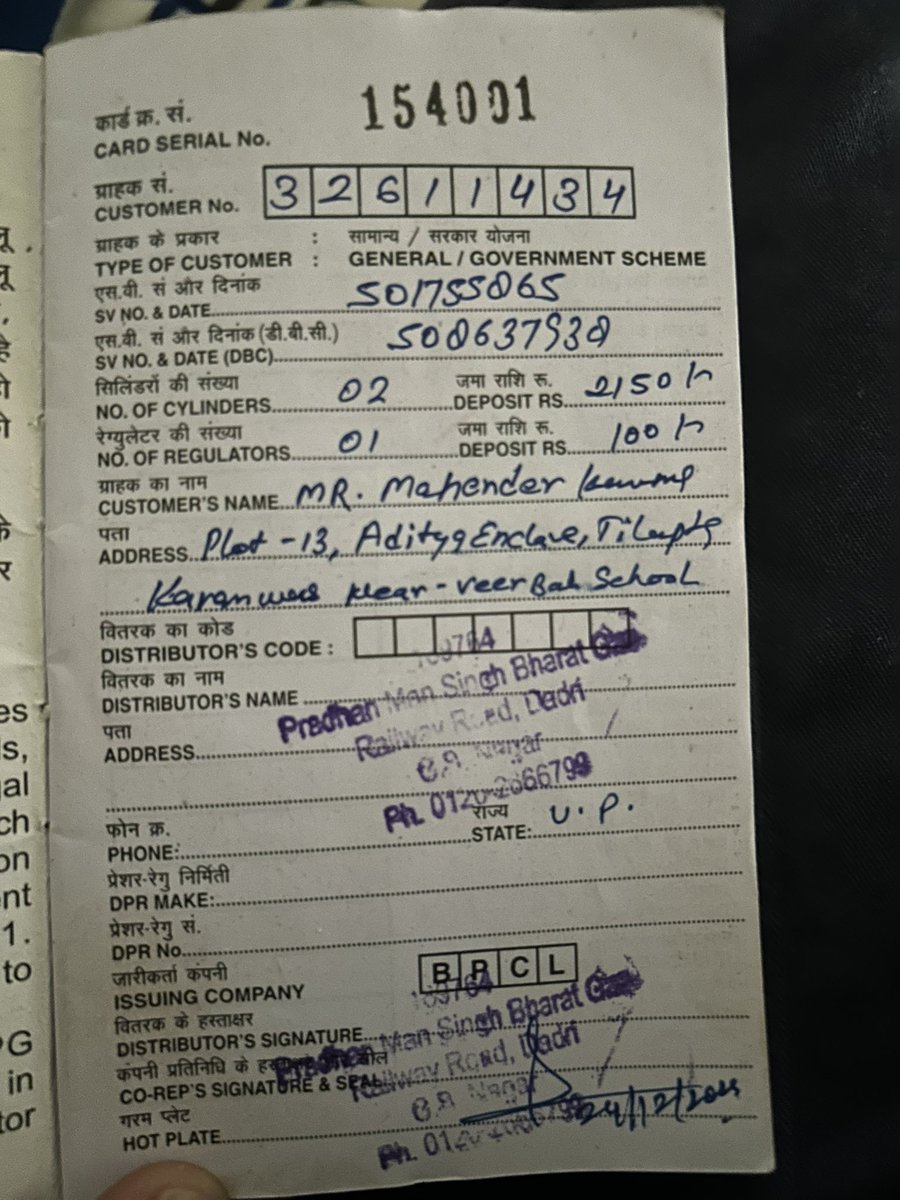 कार्ड क्र. सं.
CARD SERIAL No. 154001
ग्राहक सं.
CUSTOMER No. 3 2 6 1 1 4 3 4
ग्राहक के प्रकार : सामान्य / सरकार योजना
TYPE OF CUSTOMER : GENERAL / GOVERNMENT SCHEME
एस.वी. सं और दिनांक
SV NO. & DATE 501755865
एस.वी. सं और दिनांक (डी.बी.सी.)
SV NO. & DATE (DBC)
सिलिंडरों की संख्या जमा राशि रु.
NO. OF CYLINDERS 02 DEPOSIT RS. 2150
रेग्युलेटर की संख्या जमा राशि रु.
NO. OF REGULATORS 01 DEPOSIT RS. 100
ग्राहक का नाम
CUSTOMER'S NAME MR. Mahender
पता
ADDRESS Plot -13, Aditya Enclave,
Near - Veer School
वितरक का कोड
DISTRIBUTOR'S CODE :
109764
वितरक का नाम
DISTRIBUTOR'S NAME Pradhan Man Singh Bharat Gas
पता
ADDRESS Railway Road, Dadri
G.B. Nagar
Ph. 0120-2666799
फोन क्र. राज्य
PHONE: STATE: U.P.
प्रेशर-रेगु निर्मिती
DPR MAKE:
प्रेशर-रेगु सं.
DPR No.
जारीकर्ता कंपनी
ISSUING COMPANY B P C L
109764
वितरक के हस्ताक्षर
DISTRIBUTOR'S SIGNATURE
Pradhan Man Singh Bharat Gas
कंपनी प्रतिनिधि के
CO-REP'S SIGNATURE & SEAL
Railway Road, Dadri
G.B. Nagar
गरम प्लेट
HOT PLATE
Ph. 0120-2666799